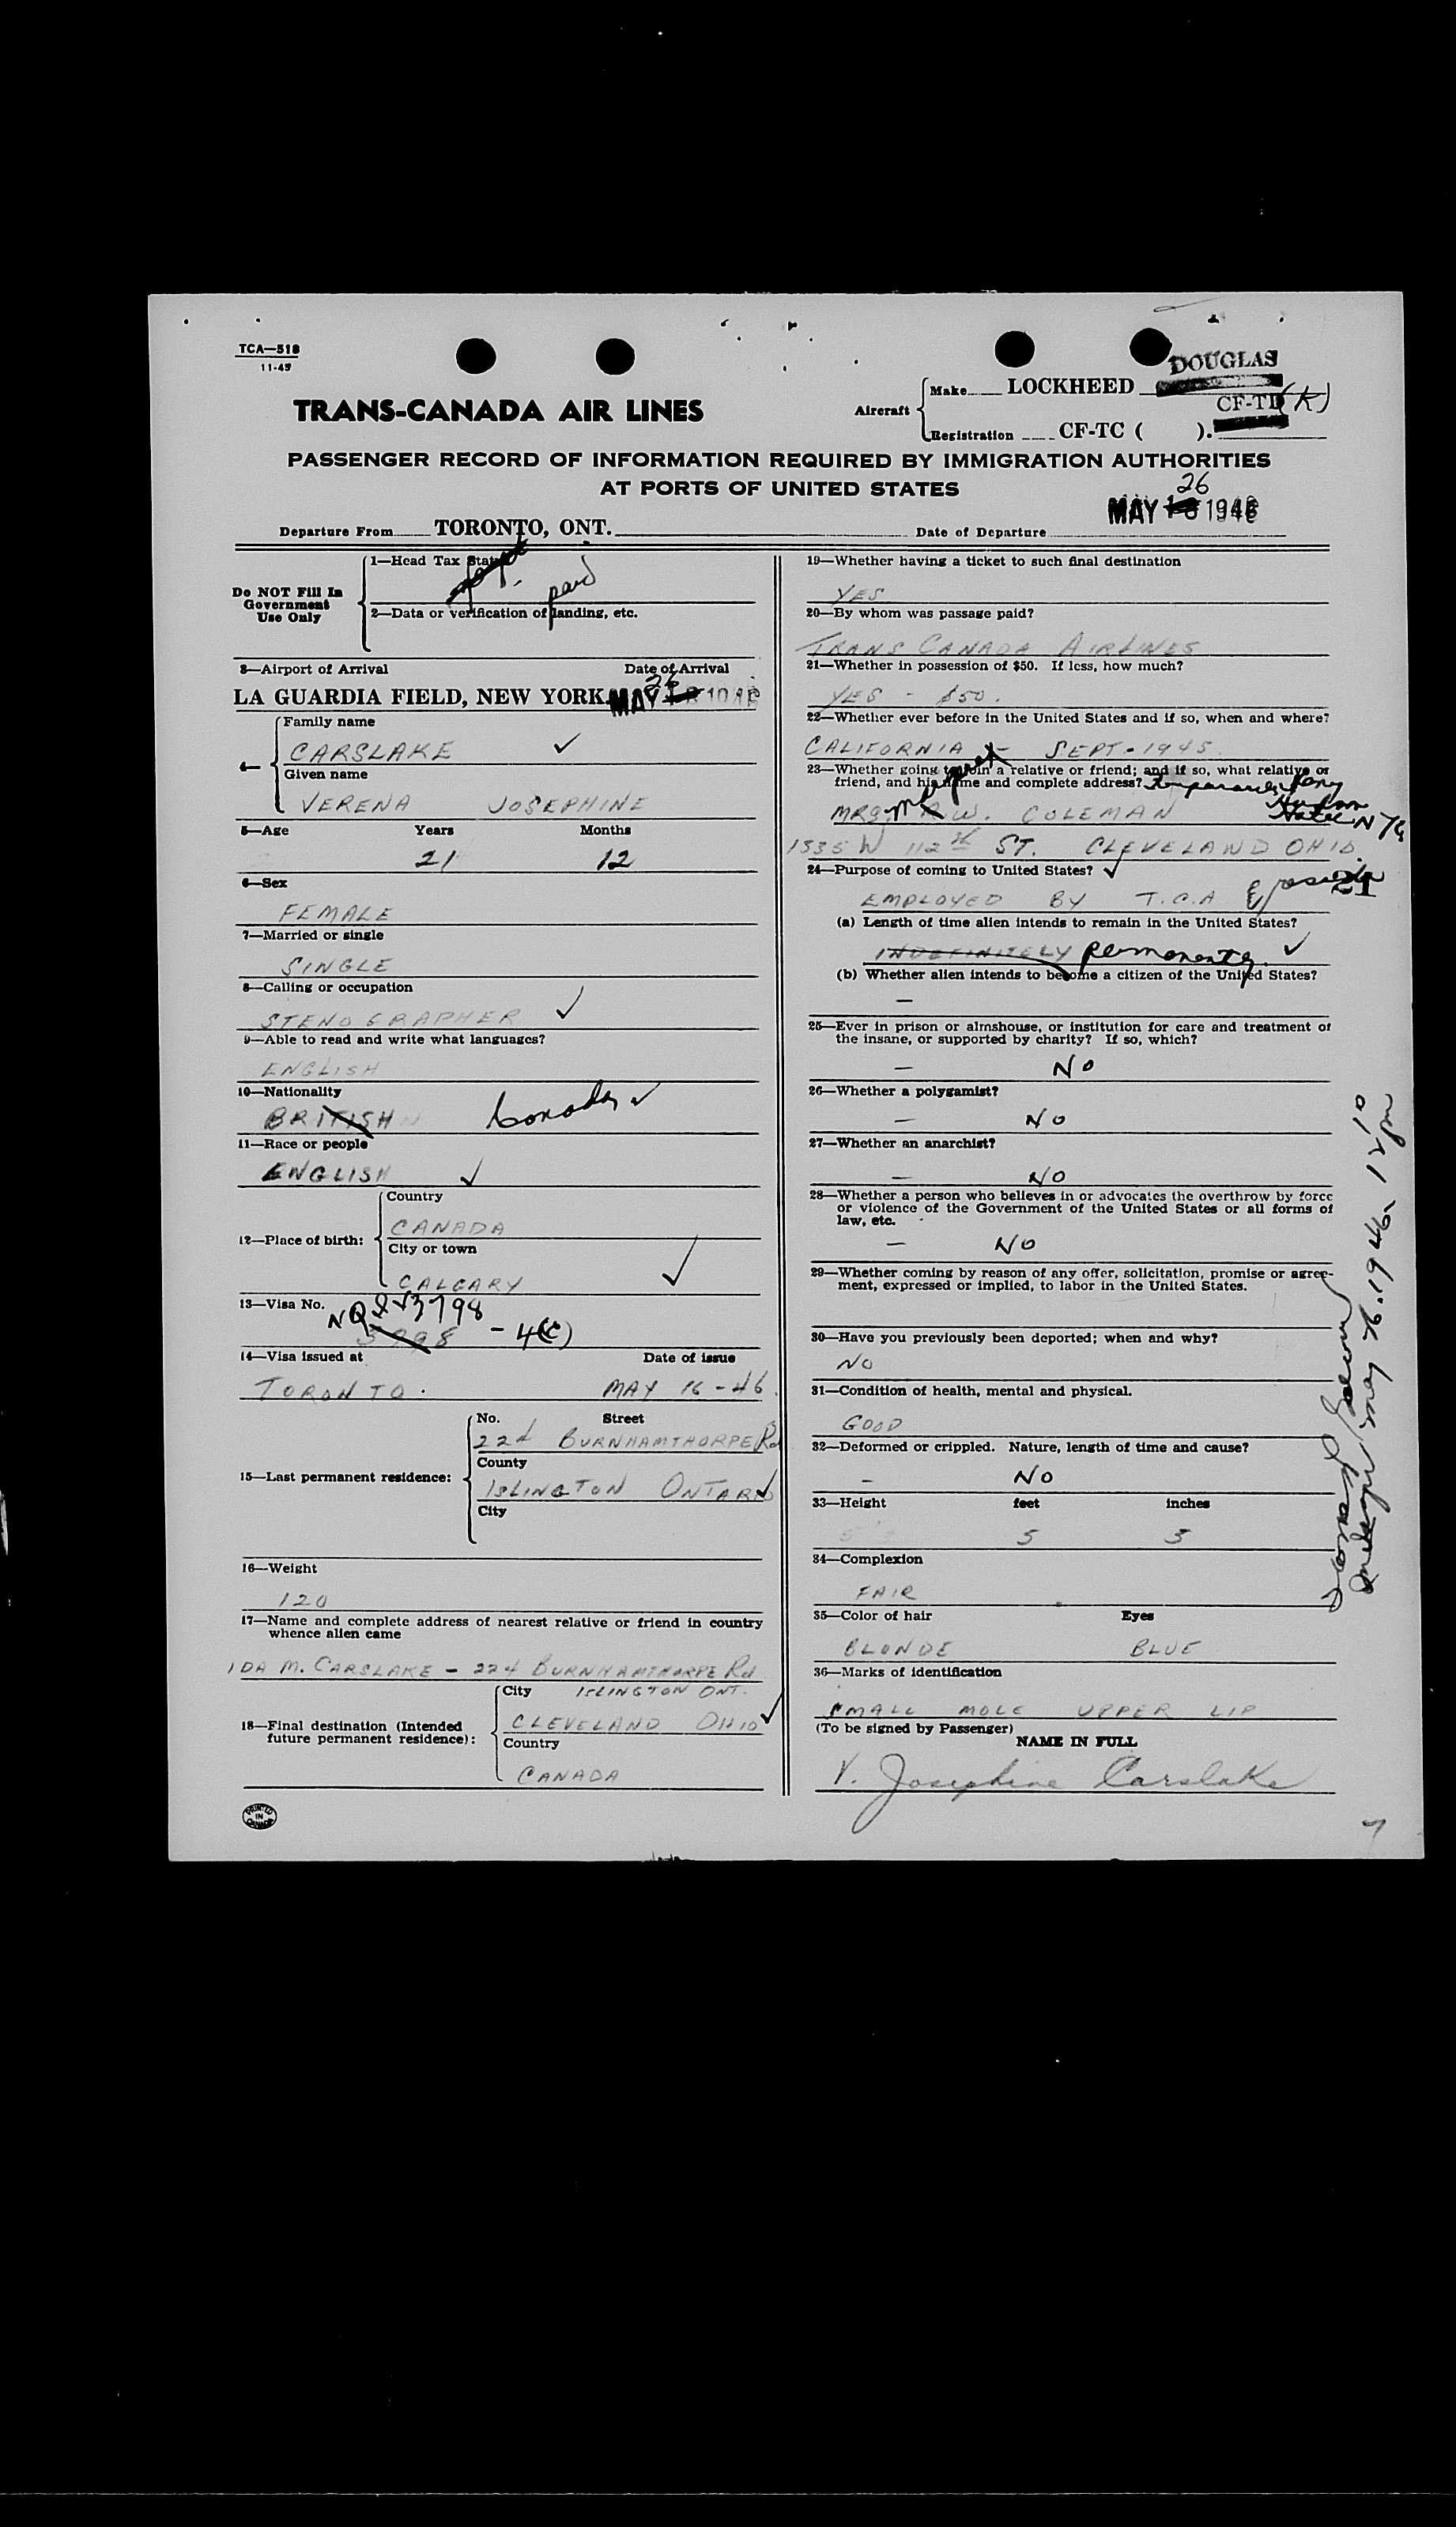 TCA—518
11-45
TRANS-CANADA AIR LINES
Aircraft
Make LOCKHEED DOUGLAS
Registration CF-TC ( ). CF-TD (K)
PASSENGER RECORD OF INFORMATION REQUIRED BY IMMIGRATION AUTHORITIES
AT PORTS OF UNITED STATES
Departure From TORONTO, ONT.
Date of Departure MAY 26 1946
Do NOT Fill In
Government
Use Only
1—Head Tax Status
paid
2—Data or verification of landing, etc.
3—Airport of Arrival Date of Arrival
LA GUARDIA FIELD, NEW YORK. MAY 26
4—
Family name
CARSLAKE ✓
Given name
VERENA JOSEPHINE
5—Age Years Months
21 12
6—Sex
FEMALE
7—Married or single
SINGLE
8—Calling or occupation
STENOGRAPHER ✓
9—Able to read and write what languages?
ENGLISH
10—Nationality
BRITISH Canada ✓
11—Race or people
ENGLISH ✓
12—Place of birth:
Country
CANADA
City or town
CALGARY ✓
13—Visa No.
NQIV3798 - 4(c)
14—Visa issued at Date of issue
TORONTO. MAY 16-46.
15—Last permanent residence:
No. Street
224 BURNHAMTHORPE Rd
County
ISLINGTON ONTARIO ✓
City
16—Weight
120
17—Name and complete address of nearest relative or friend in country
whence alien came
IDA M. CARSLAKE - 224 BURNHAMTHORPE Rd
ISLINGTON ONT.
18—Final destination (Intended
future permanent residence):
City
CLEVELAND OHIO ✓
Country
CANADA
PRINTED
IN
CANADA
19—Whether having a ticket to such final destination
YES
20—By whom was passage paid?
TRANS CANADA AIRLINES
21—Whether in possession of $50. If less, how much?
YES - $50.
22—Whether ever before in the United States and if so, when and where?
CALIFORNIA - SEPT-1945.
23—Whether going to join a relative or friend; and if so, what relative or
friend, and his name and complete address?
Henry
Hudson
Hotel NYC
MRS. R.W. COLEMAN
1535 W 112th ST. CLEVELAND OHIO.
24—Purpose of coming to United States? ✓
EMPLOYED BY T.C.A & reside
21
(a) Length of time alien intends to remain in the United States?
INDEFINITELY permanently. ✓
(b) Whether alien intends to become a citizen of the United States?
—
25—Ever in prison or almshouse, or institution for care and treatment of
the insane, or supported by charity? If so, which?
— NO
26—Whether a polygamist?
— NO
27—Whether an anarchist?
— NO
28—Whether a person who believes in or advocates the overthrow by force
or violence of the Government of the United States or all forms of
law, etc.
— NO
29—Whether coming by reason of any offer, solicitation, promise or agree-
ment, expressed or implied, to labor in the United States.
30—Have you previously been deported; when and why?
NO
31—Condition of health, mental and physical.
GOOD
32—Deformed or crippled. Nature, length of time and cause?
— NO
33—Height feet inches
5 3
34—Complexion
FAIR
35—Color of hair Eyes
BLONDE BLUE
36—Marks of identification
SMALL MOLE UPPER LIP
(To be signed by Passenger)
NAME IN FULL
V. Josephine Carslake
May 26. 1946 12 10 pm
7